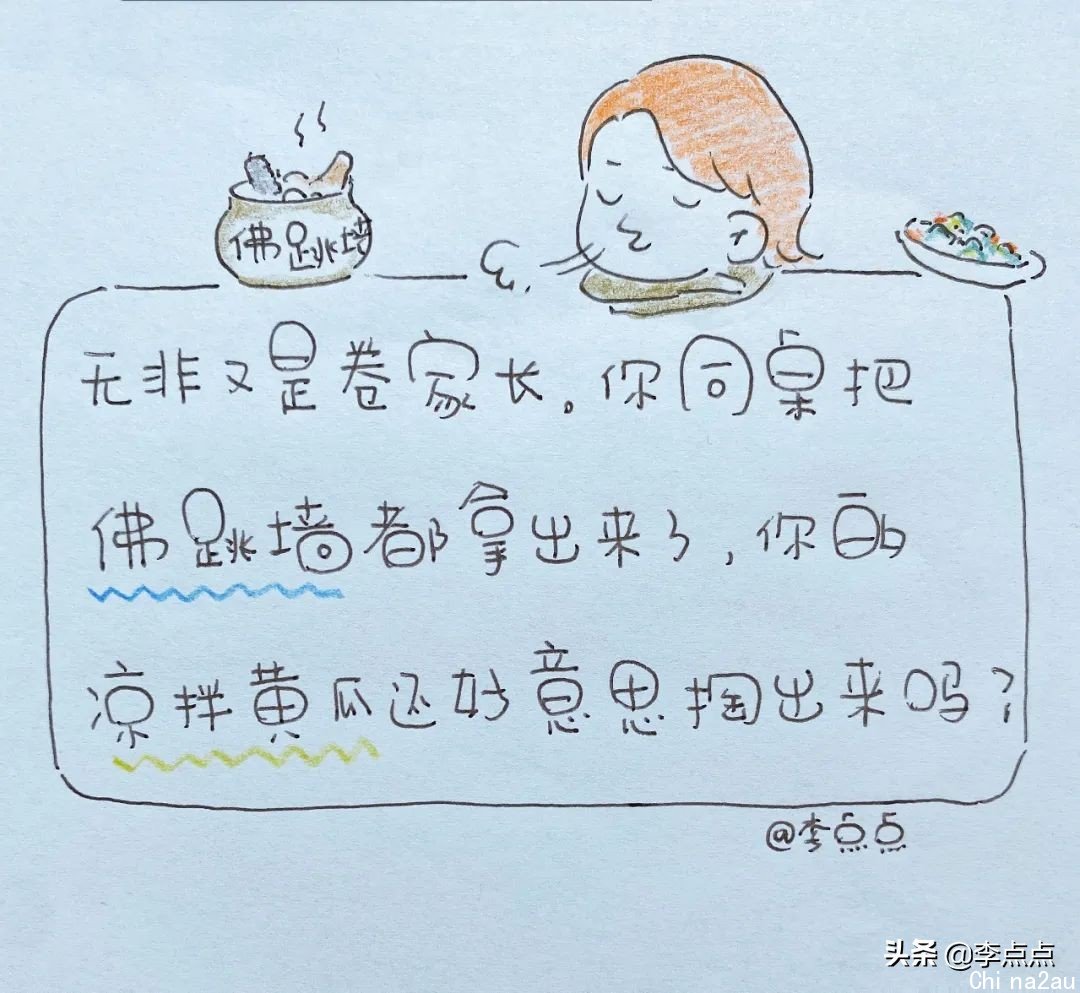 佛跳墙
无非又是卷家长。你同桌把
佛跳墙都拿出来了,你的
凉拌黄瓜还好意思掏出来吗?
@李点点
头条 @李点点
Chi na2au